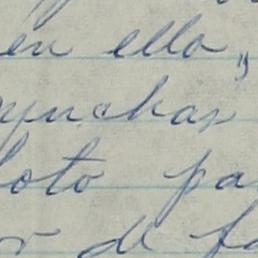 en ella,
munchas
foto pa
r de fa